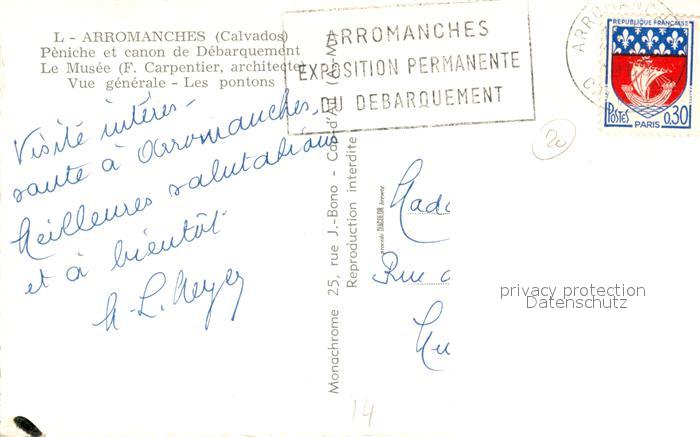 L - ARROMANCHES (Calvados)
Péniche et canon de Débarquement
Le Musée (F. Carpentier, architecte)
Vue générale - Les pontons
ARROMANCHES
EXPOSITION PERMANENTE
DU DEBARQUEMENT
ARROMANC
REPUBLIQUE FRANÇAISE
POSTES
0,30
PARIS
20
Visite intéres-
sante à Arromanches,
Meilleures salutations
et à bientôt.
Monachrome 25, rue J.-Bono -
Reproduction interdite
procédé DIACOLOR breveté
Mada
Rue
privacy protection
Datenschutz
14